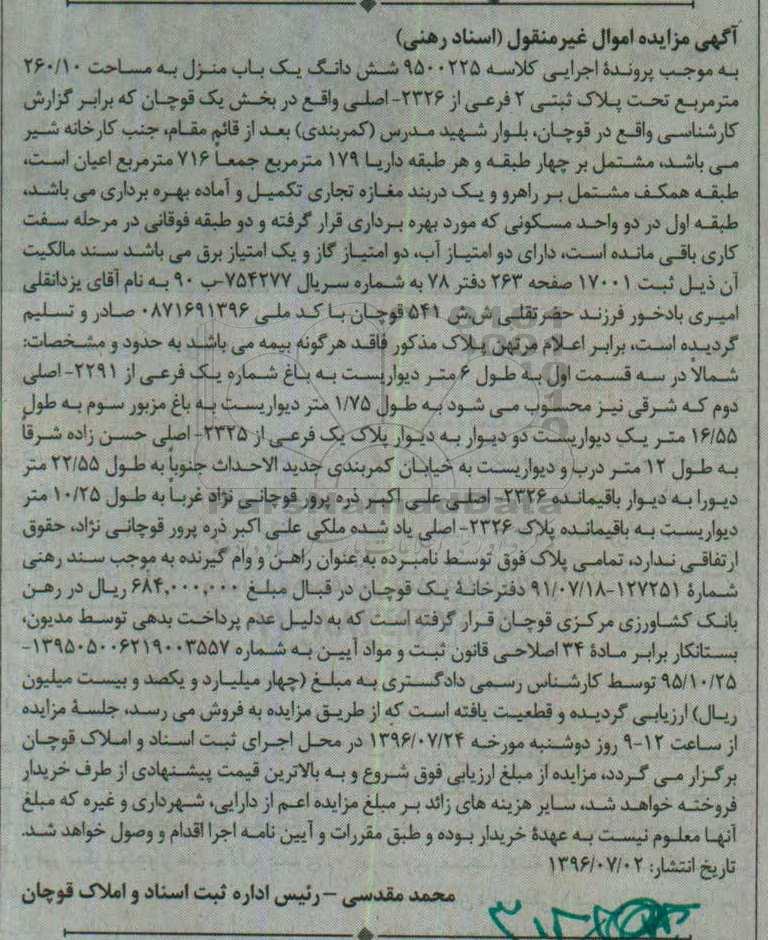 آگهی مزایده اموال غیرمنقول (اسناد رهنی)
به موجب پروندۀ اجرایی کلاسه ۹۵۰۰۲۲۵ شش دانگ یک باب منزل به مساحت ۲۶۰/۱۰
مترمربع تحت پلاک ثبتی ۲ فرعی از ۲۳۲۶- اصلی واقع در بخش یک قوچان که برابر گزارش
کارشناسی واقع در قوچان، بلوار شهید مدرس (کمربندی) بعد از قائم مقام، جنب کارخانه شیر
می باشد، مشتمل بر چهار طبقه و هر طبقه داریا ۱۷۹ مترمربع جمعاً ۷۱۶ مترمربع اعیان است،
طبقه همکف مشتمل بر راهرو و یک دربند مغازه تجاری تکمیل و آماده بهره برداری می باشد،
طبقه اول در دو واحد مسکونی که مورد بهره برداری قرار گرفته و دو طبقه فوقانی در مرحله سفت
کاری باقی مانده است، دارای دو امتیاز آب، دو امتیاز گاز و یک امتیاز برق می باشد سند مالکیت
آن ذیل ثبت ۱۷۰۰۱ صفحه ۲۶۳ دفتر ۷۸ به شماره سریال ۷۵۴۲۷۷-ب ۹۰ به نام آقای یزدانقلی
امیری بادخور فرزند حضرتقلی ش.ش ۵۴۱ قوچان با کد ملی ۰۸۷۱۶۹۱۳۹۶ صادر و تسلیم
گردیده است، برابر اعلام مرتهن پلاک مذکور فاقد هرگونه بیمه می باشد به حدود و مشخصات:
شمالاً در سه قسمت اول به طول ۶ متر دیواریست به باغ شماره یک فرعی از ۲۲۹۱- اصلی
دوم که شرقی نیز محسوب می شود به طول ۱/۷۵ متر دیواریست به باغ مزبور سوم به طول
۱۶/۵۵ متر یک دیواریست دو دیوار به دیوار پلاک یک فرعی از ۲۳۲۵- اصلی حسن زاده شرقاً
به طول ۱۲ متر درب و دیواریست به خیابان کمربندی جدید الاحداث جنوباً به طول ۲۲/۵۵ متر
دیورا به دیوار باقیمانده ۲۳۲۶- اصلی علی اکبر ذره پرور قوچانی نژاد غرباً به طول ۱۰/۲۵ متر
دیواریست به باقیمانده پلاک ۲۳۲۶- اصلی یاد شده ملکی علی اکبر ذره پرور قوچانی نژاد، حقوق
ارتفاقی ندارد، تمامی پلاک فوق توسط نامبرده به عنوان راهن و وام گیرنده به موجب سند رهنی
شمارۀ ۱۲۷۲۵۱-۹۱/۰۷/۱۸ دفترخانۀ یک قوچان در قبال مبلغ ۶۸۴,۰۰۰,۰۰۰ ریال در رهن
بانک کشاورزی مرکزی قوچان قرار گرفته است که به دلیل عدم پرداخت بدهی توسط مدیون،
بستانکار برابر مادۀ ۳۴ اصلاحی قانون ثبت و مواد آیین به شماره ۱۳۹۵۰۵۰۰۶۲۱۹۰۰۳۵۵۷-
۹۵/۱۰/۲۵ توسط کارشناس رسمی دادگستری به مبلغ (چهار میلیارد و یکصد و بیست میلیون
ریال) ارزیابی گردیده و قطعیت یافته است که از طریق مزایده به فروش می رسد، جلسۀ مزایده
از ساعت ۱۲-۹ روز دوشنبه مورخه ۱۳۹۶/۰۷/۲۴ در محل اجرای ثبت اسناد و املاک قوچان
برگزار می گردد، مزایده از مبلغ ارزیابی فوق شروع و به بالاترین قیمت پیشنهادی از طرف خریدار
فروخته خواهد شد، سایر هزینه های زائد بر مبلغ مزایده اعم از دارایی، شهرداری و غیره که مبلغ
آنها معلوم نیست به عهدۀ خریدار بوده و طبق مقررات و آیین نامه اجرا اقدام و وصول خواهد شد.
تاریخ انتشار: ۱۳۹۶/۰۷/۰۲
محمد مقدسی – رئیس اداره ثبت اسناد و املاک قوچان
ParsNamadData